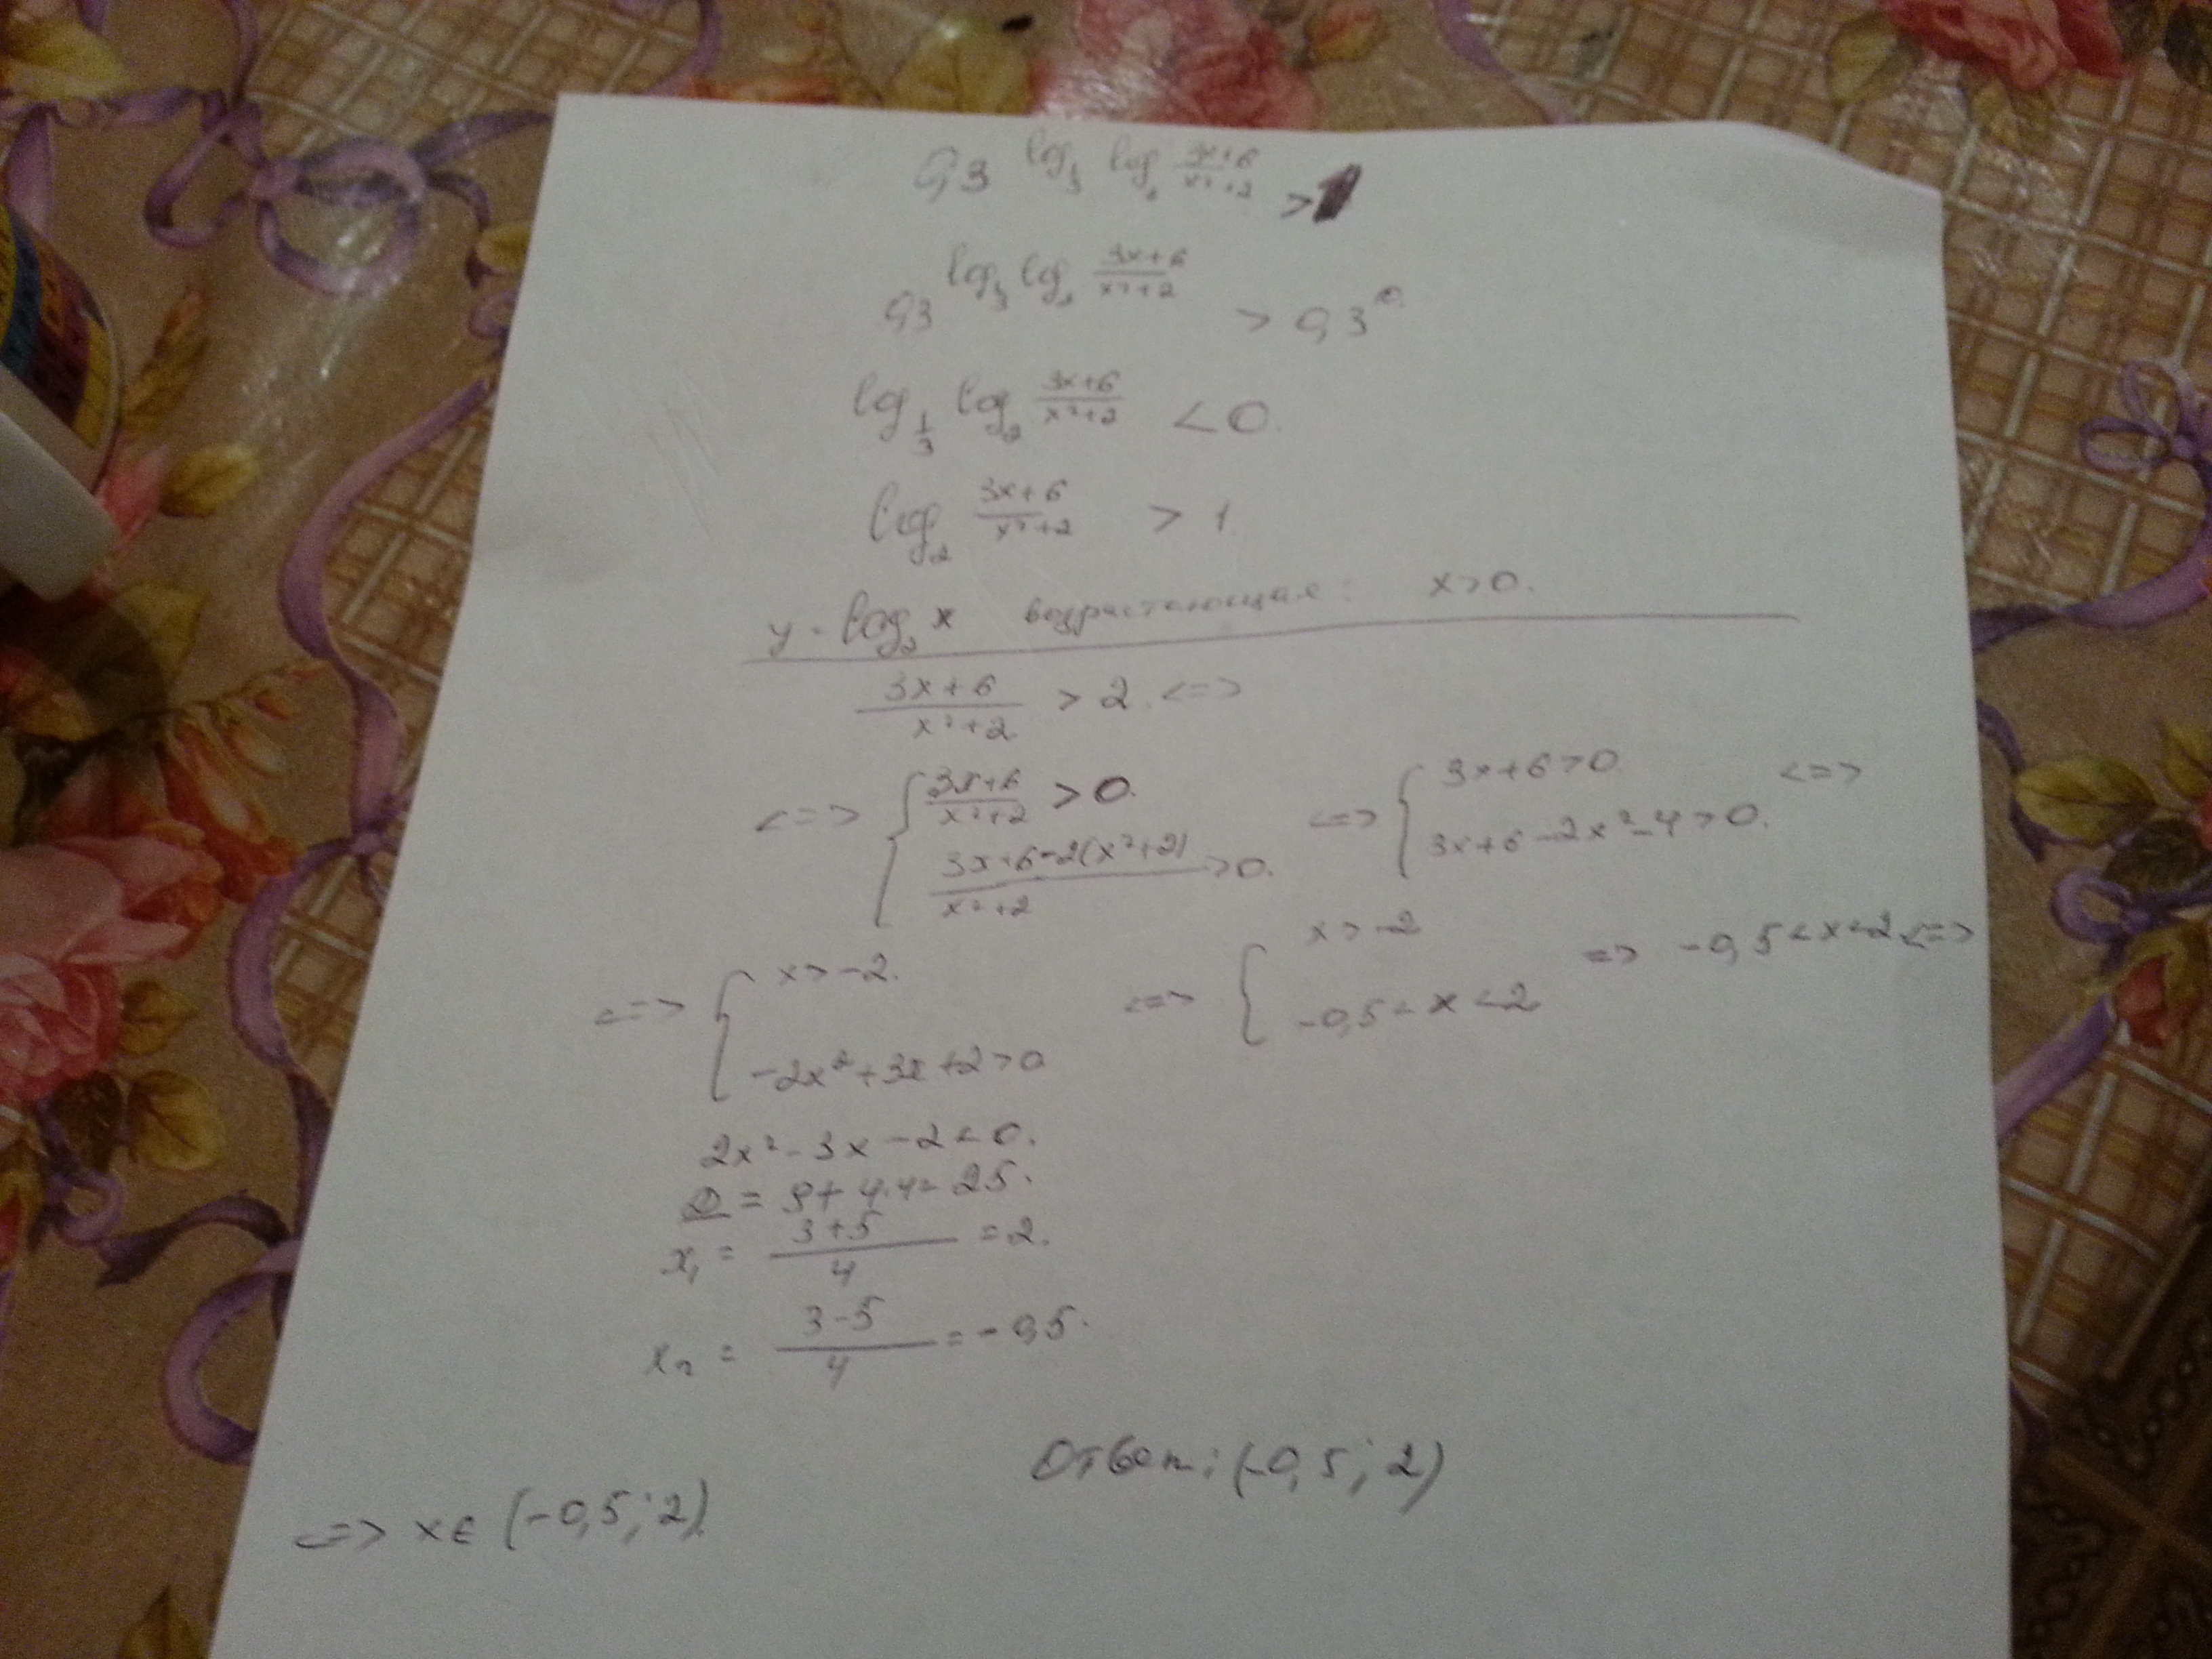 0,3^{log_{1/3} log_2 \frac{3x+6}{x²+2}} > 1
0,3^{log_{1/3} log_2 \frac{3x+6}{x²+2}} > 0,3^0
log_{1/3} log_2 \frac{3x+6}{x²+2} < 0.
log_2 \frac{3x+6}{x²+2} > 1.
y = log_2 x возрастающая: x>0.
\frac{3x+6}{x²+2} > 2. <=>
<=> { \frac{3x+6}{x²+2} > 0. ; \frac{3x+6-2(x²+2)}{x²+2} > 0. <=> { 3x+6>0 ; 3x+6-2x²-4>0. <=>
<=> { x>-2. ; -2x²+3x+2>0 <=> { x>-2 ; -0,5<x<2 => -0,5<x<2 <=>
2x²-3x-2<0.
D = 9+4·4=25.
x₁ = \frac{3+5}{4} = 2.
x₂ = \frac{3-5}{4} = -0,5.
Ответ: (-0,5; 2)
<=> x∈(-0,5; 2).